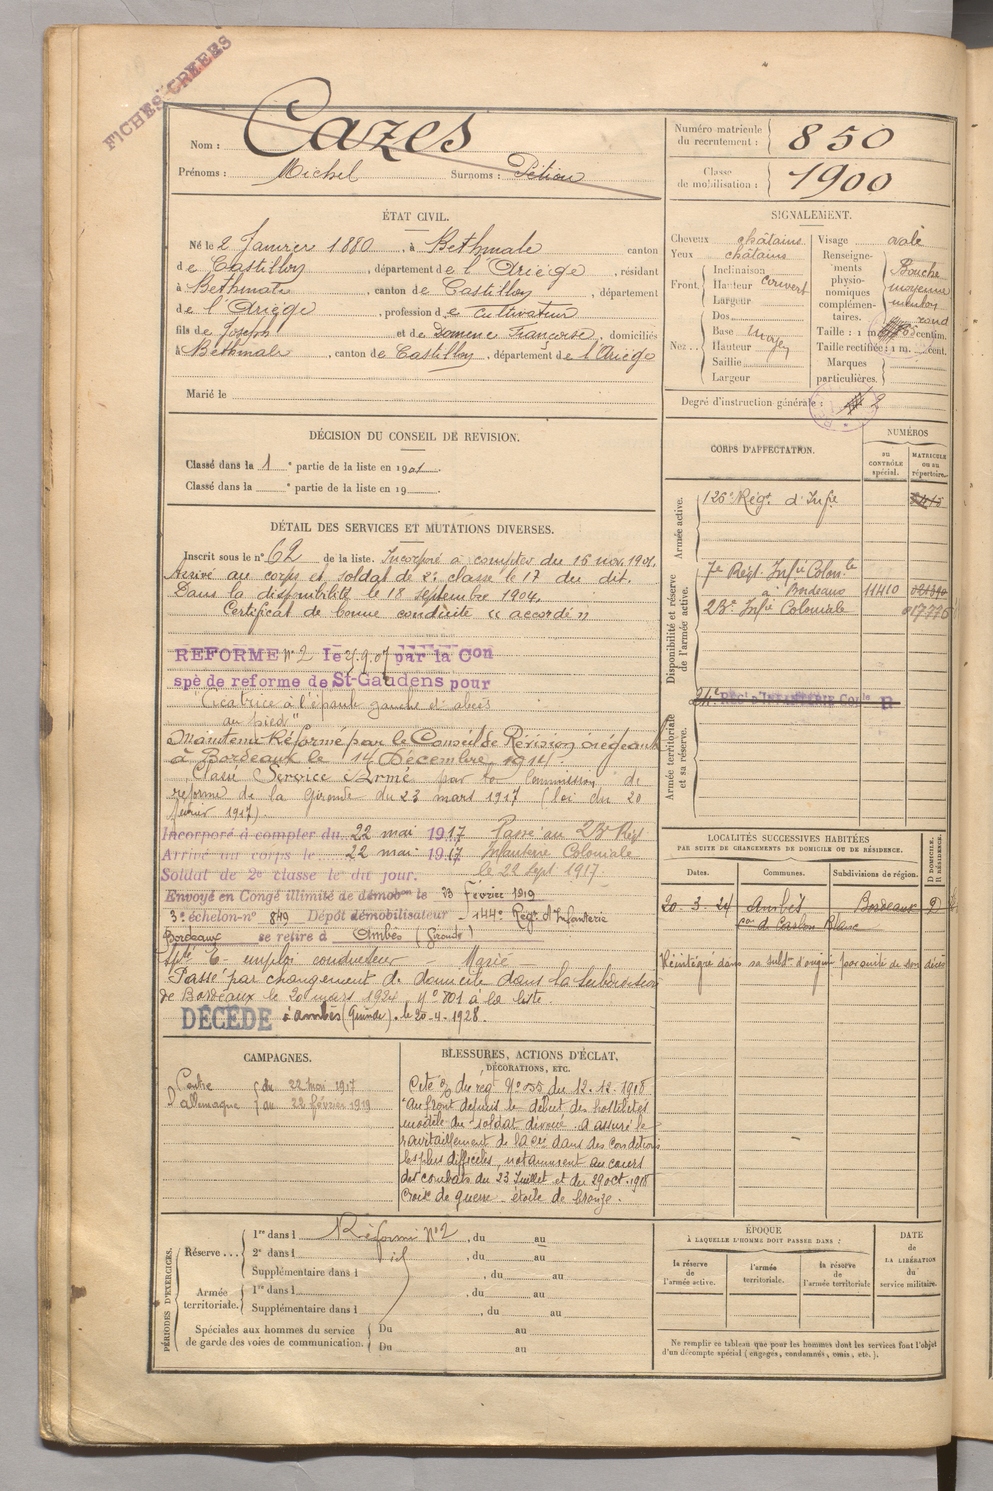 FICHES CREEES
Nom : Cazes
Prénoms : Michel Surnoms : Pétiou
Numéro matricule du recrutement : 850
Classe de mobilisation : 1900
ÉTAT CIVIL.
Né le 2 Janvier 1880, à Bethmale canton
de Castillon, département de l'Ariège, résidant
à Bethmale, canton de Castillon, département
de l'Ariège, profession de cultivateur
fils de Joseph et de Domenc Françoise, domiciliés
à Bethmale, canton de Castillon, département de l'Ariège
Marié le
SIGNALEMENT.
Cheveux châtains
Yeux châtains
Front. Inclinaison
Hauteur couvert
Largeur
Nez.. Dos
Base moyen
Hauteur
Saillie
Largeur
Visage ovale
Renseignements physionomiques complémentaires. Bouche moyenne menton rond
Taille : 1 m centim.
Taille rectifiée : 1 m. cent.
Marques particulières.
Degré d'instruction générale : 2
DÉCISION DU CONSEIL DE REVISION.
Classé dans la 1e partie de la liste en 1901.
Classé dans la e partie de la liste en 19
DÉTAIL DES SERVICES ET MUTATIONS DIVERSES.
Inscrit sous le n° 62 de la liste. Incorporé à compter du 16 nov. 1901.
Arrivé au corps et soldat de 2e classe le 17 du dit.
Dans la disponibilité le 18 septembre 1904.
Certificat de bonne conduite "accordé"
REFORME N°2 le 3.9.07 par la Con
spé de reforme de St-Gaudens pour
"Cicatrice à l'épaule gauche et abcès
au pied"
Maintenu Réformé par le Conseil de Révision siégeant
à Bordeaux le 14 Décembre 1914.
Classé Service Armé par la Commission de
reforme de la Gironde du 23 mars 1917 (loi du 20
février 1917).
Incorporé à compter du 22 mai 1917 Passé au 23e Regt
Arrivé au corps le 22 mai 1917 Infanterie Coloniale
Soldat de 2e classe le dit jour. le 22 sept 1917
Envoyé en Congé illimité de démobon le 23 Février 1919
3e échelon-n° 849 Dépôt démobilisateur - 144e Regt d'Infanterie
Bordeaux se retire à Ambès (Gironde)
emploi conducteur - Marié
Passé par changement de domicile dans la subdivision
de Bordeaux le 20 mars 1924 N° 701 à la liste.
DÉCÉDÉ à Ambès (Gironde). le 20-4-1928.
CORPS D'AFFECTATION.
NUMÉROS
au CONTRÔLE spécial.
MATRICULE ou au répertoire.
Armée active.
126e Régt d'Infie
Disponibilité et réserve de l'armée active.
7e Régt Infie Colonle
à Bordeaux 11410
23e Infie Coloniale 17776
Armée territoriale et sa réserve.
24e REGt D'INFANTERIE Conle B
LOCALITÉS SUCCESSIVES HABITÉES
PAR SUITE DE CHANGEMENTS DE DOMICILE OU DE RÉSIDENCE.
Dates. Communes. Subdivisions de région. D DOMICILE. R RÉSIDENCE.
20-3-24 Ambès Bordeaux D
Réintégré dans sa subdon d'origine par suite de son décès
CAMPAGNES.
Contre l'allemagne du 22 mai 1917
au 22 février 1919
BLESSURES, ACTIONS D'ÉCLAT,
DÉCORATIONS, ETC.
Cité du regt N° 155 du 12.12.1918
"Au front depuis le début des hostilités
modèle du soldat dévoué. A assuré le
ravitaillement de la Cie dans des conditions
les plus difficiles, notamment au cours
des combats du 23 Juillet et du 29 oct. 1918
Croix de guerre - étoile de bronze.
PÉRIODES D'EXERCICES.
Réserve... 1re dans l Réformé N°2, du au
2e dans l id, du au
Supplémentaire dans l, du au
Armée territoriale. 1re dans l, du au
Supplémentaire dans l, du au
Spéciales aux hommes du service de garde des voies de communication. Du au
Du au
ÉPOQUE
À LAQUELLE L'HOMME DOIT PASSER DANS :
la réserve de l'armée active.
l'armée territoriale.
la réserve de l'armée territoriale
DATE DE LA LIBÉRATION du service militaire.
Ne remplir ce tableau que pour les hommes dont les services font l'objet
d'un décompte spécial (engagés, condamnés, omis, etc.).